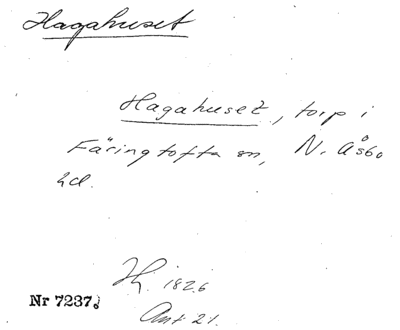 Hagahuset
Hagahuset, torp i
Färingtofta sn, N. Åsbo
hd.
Hj. 1826
Nr 7237.
Ant. 21.